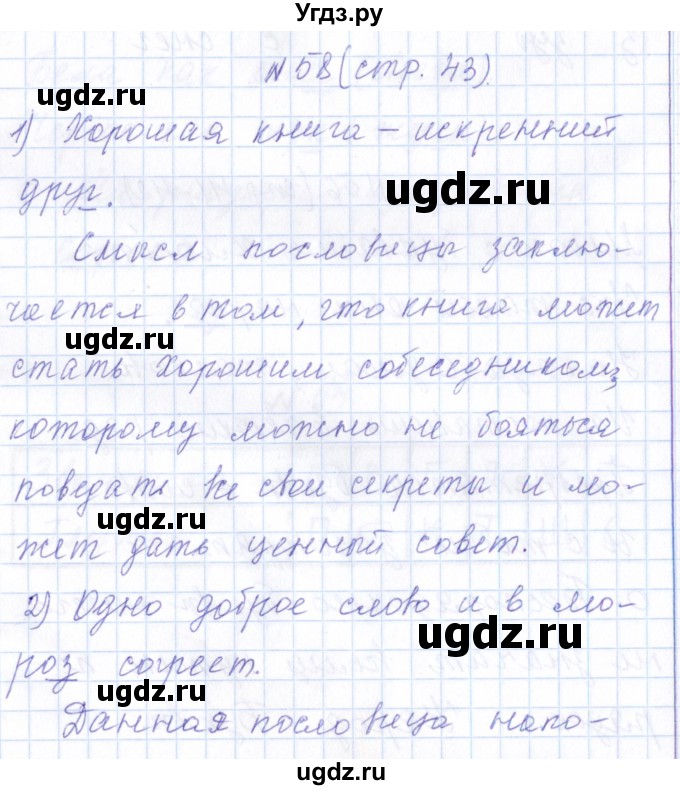 Угдз.ру
№58 (стр. 43)
ugdz.ru
1) Хорошая книга – искренний
ugdz.ru
друг.
Смысл пословицы заклю-
чается в том, что книга может
ugdz.ru
стать хорошим собеседником,
которому можно не бояться
поведать все свои секреты и мо-
ugdz.ru
жет дать ценный совет.
2) Одно доброе слово и в мо-
ugdz.ru
роз согреет.
ugdz.ru
Данная пословица напо-
ugdz.ru